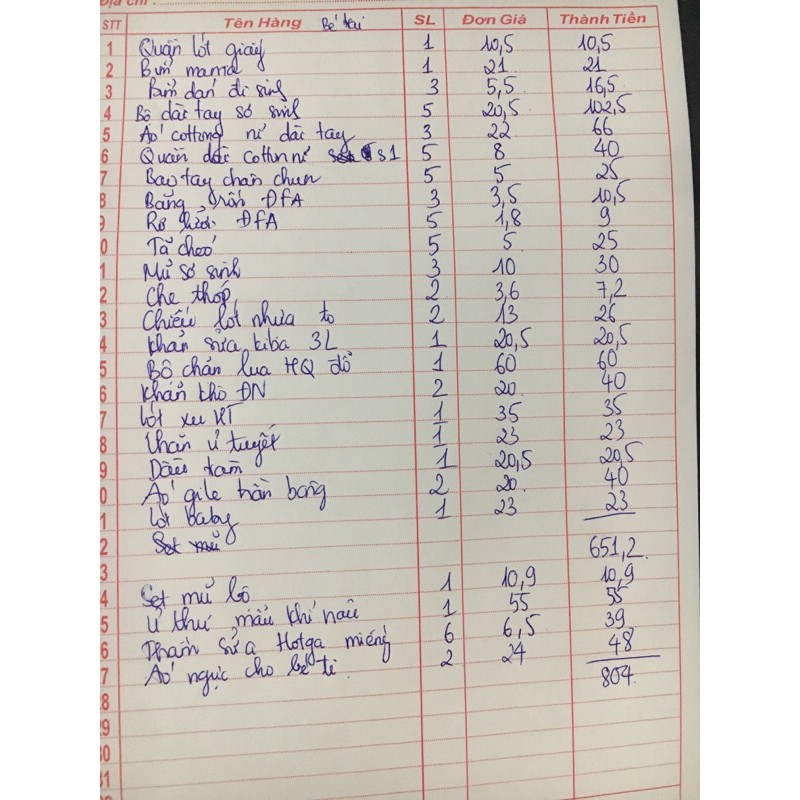 Địa chỉ :
STT Tên Hàng Bé trai SL Đơn Giá Thành Tiền
1 Quần lót giấy 1 10,5 10,5
2 Bỉm mama 1 21 21
3 Bỉm dán đi sinh 3 5,5 16,5
4 Bộ dài tay sơ sinh 5 20,5 102,5
5 Áo cottong nỉ dài tay 3 22 66
6 Quần dài cotton nỉ s1 5 8 40
7 Bao tay chân chun 5 5 25
8 Băng rốn ĐFA 3 3,5 10,5
9 Rơ lưỡi ĐFA 5 1,8 9
0 Tã chéo 5 5 25
1 Mũ sơ sinh 3 10 30
2 Che thóp 2 3,6 7,2
3 Chiếu lót nhựa to 2 13 26
4 Khăn sữa kiba 3L 1 20,5 20,5
5 Bộ chăn lụa HQ đỏ 1 60 60
6 Khăn khô ĐN 2 20 40
7 Lót xu KT 1 35 35
8 Chăn ủ tuyết 1 23 23
9 Dầu tắm 1 20,5 20,5
0 Áo gile trần bông 2 20 40
1 Lót baby 1 23 23
2 Set mũ 651,2
3
4 Set mũ bô 1 10,9 10,9
5 Ủ thu mẫu khỉ nâu 1 55 55
6 sữa Hotga miếng 6 6,5 39
7 Áo ngực cho bé ti 2 24 48
804
8
29
30
31